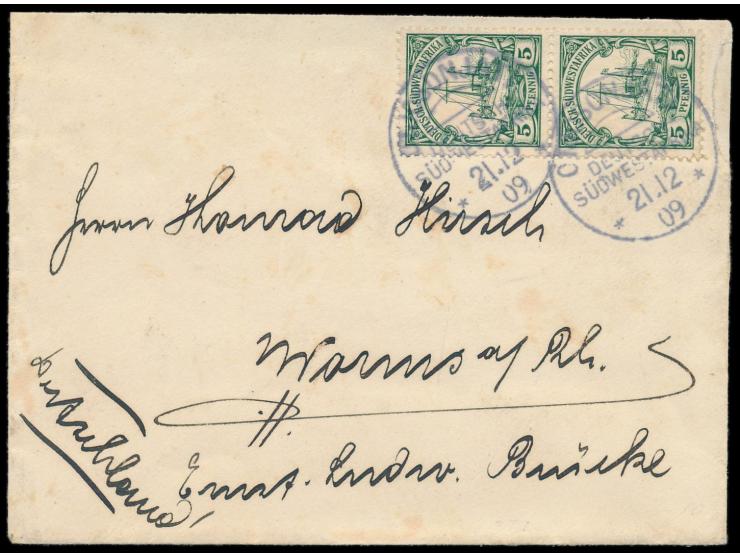 DEUTSCH-SÜDWESTAFRIKA
5 PFENNIG 5
DEUTSCH-SÜDWESTAFRIKA
5 PFENNIG 5
SÜDWEST
21.12
09
SÜDWEST
21.12
09
Herrn Konrad Hirsch
Worms a/Rh.
Ernst. Ludw. Brücke
Deutschland